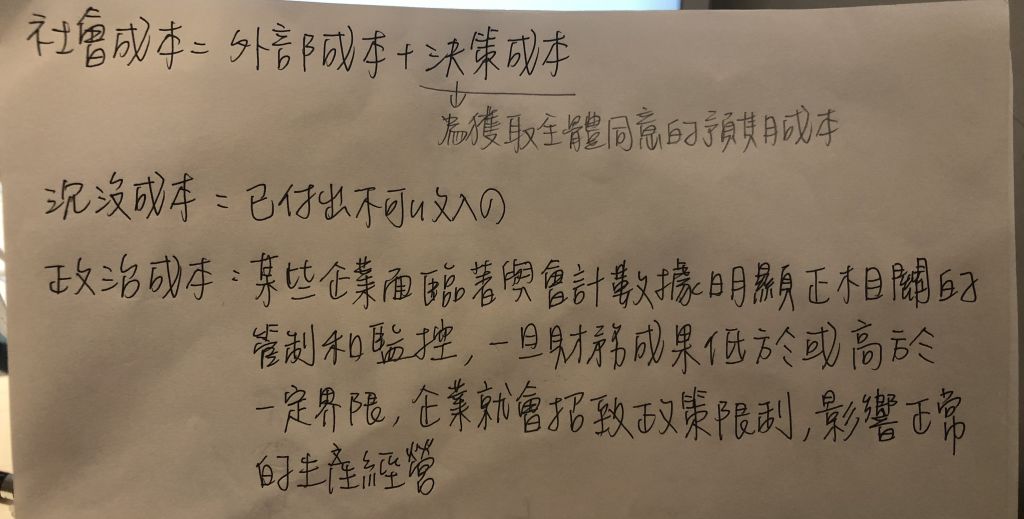 社會成本=外部成本+決策成本
為獲取全體同意的預期成本
沉沒成本=已付出不可收入の
政治成本:某些企業面臨著與會計數據明顯正相關的
管制和監控,一旦財務成果低於或高於
一定界限,企業就會招致政策限制,影響正常
的生產經營